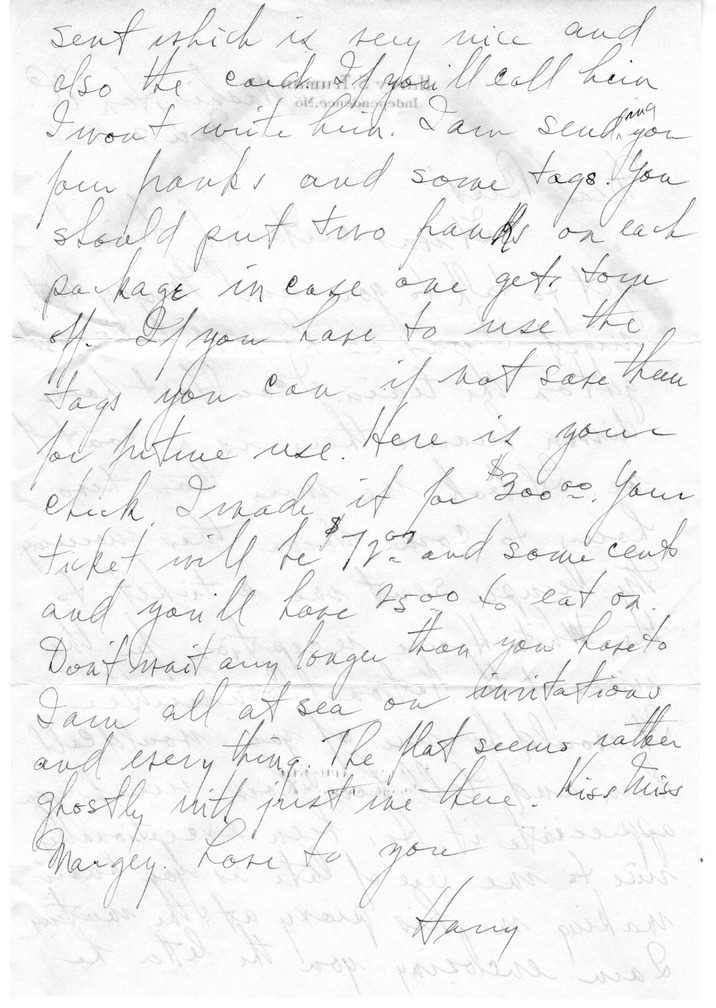 sent which is very nice and
also the card. If you'll call him
I wont write him. I am sending you
four franks and some tags. You
should put two franks on each
package in case one gets torn
off. If you have to use the
tags you can, if not save them
for future use. Here is your
check. I made it for $300⁰⁰. Your
ticket will be $72⁰⁰ and some cents
and you'll have 25⁰⁰ to eat on.
Don't wait any longer than you have to
I am all at sea on invitations
and every thing. The flat seems rather
ghostly with just me there. Kiss Miss
Margey. Love to you
Harry